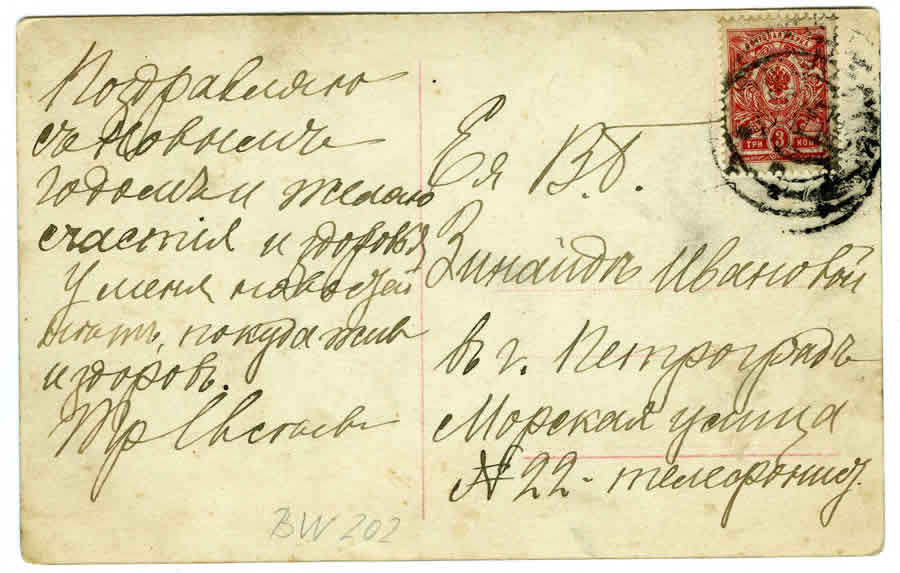 Поздравляю
съ Новымъ
годомъ и желаю
счастія и здоровья
У меня новостей
нѣтъ, покуда живъ
и здоровъ.
Ея В.Б.
Зинаидѣ Ивановой
въ г. Петроградъ
Морская улица
№ 22 - телефонис.
ТРИ 3 КОП
BW 202